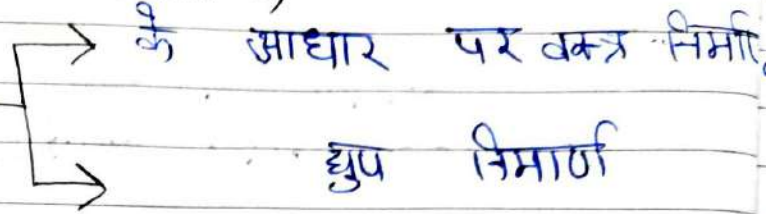 के आधार पर वक्त्र निर्मा
धुप निमार्ण